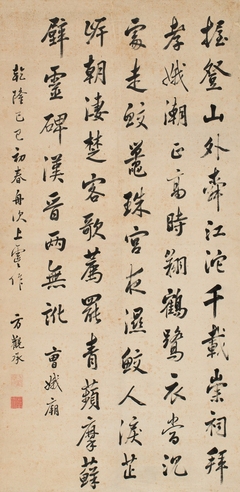 握登山外牽江沱千載崇祠拜
孝娥潮正高時翔鶴鷺衣沉
處走鼉珠宮夜濕鮫人淚芷
岸朝淒楚客歌薦罷青蘋摩蘚
壁靈碑漢晉兩無訛 曹娥廟
乾隆己巳初春舟次上虞作
方觀承